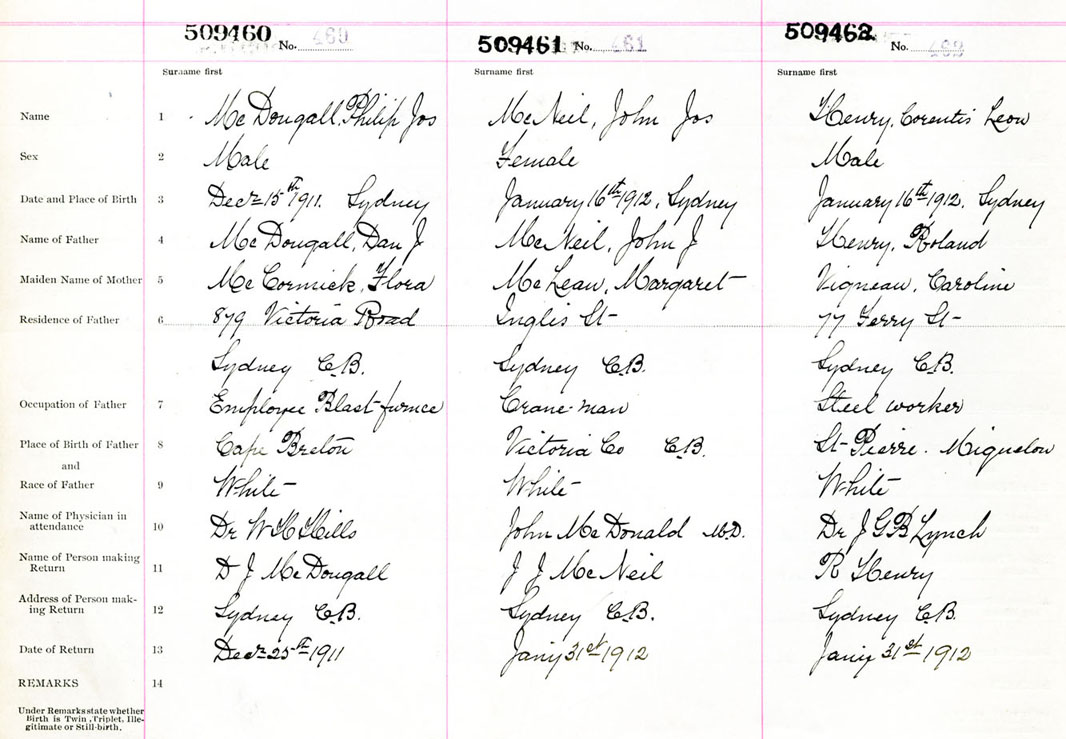 509460 No. 460
509461 No. 461
509462 No. 462
Surname first Surname first Surname first
Name 1 McDougall, Philip Jos McNeil, John Jos Henry, Corentis Leon
Sex 2 Male Female Male
Date and Place of Birth 3 Decr 15th 1911. Sydney January 16th 1912, Sydney January 16th 1912, Sydney
Name of Father 4 McDougall, Dan J McNeil, John J Henry, Roland
Maiden Name of Mother 5 McCormick, Flora McLean, Margaret Vigneau, Caroline
Residence of Father 6 879 Victoria Road Inglis St- 77 Ferry St-
Sydney C.B. Sydney C.B. Sydney C.B.
Occupation of Father 7 Employee Blast-furnce Crane-man Steel worker
Place of Birth of Father 8 Cape Breton Victoria Co C.B. St-Pierre. Miquelon
and
Race of Father 9 White White White
Name of Physician in
attendance 10 Dr W H Hills John McDonald M.D. Dr J G B Lynch
Name of Person making
Return 11 D J McDougall J J McNeil R Henry
Address of Person mak-
ing Return 12 Sydney C.B. Sydney C.B. Sydney C.B.
Date of Return 13 Decr 25th 1911 Jany 31st 1912 Jany 31st 1912
REMARKS 14
Under Remarks state whether
Birth is Twin, Triplet, Ille-
gitimate or Still-birth.